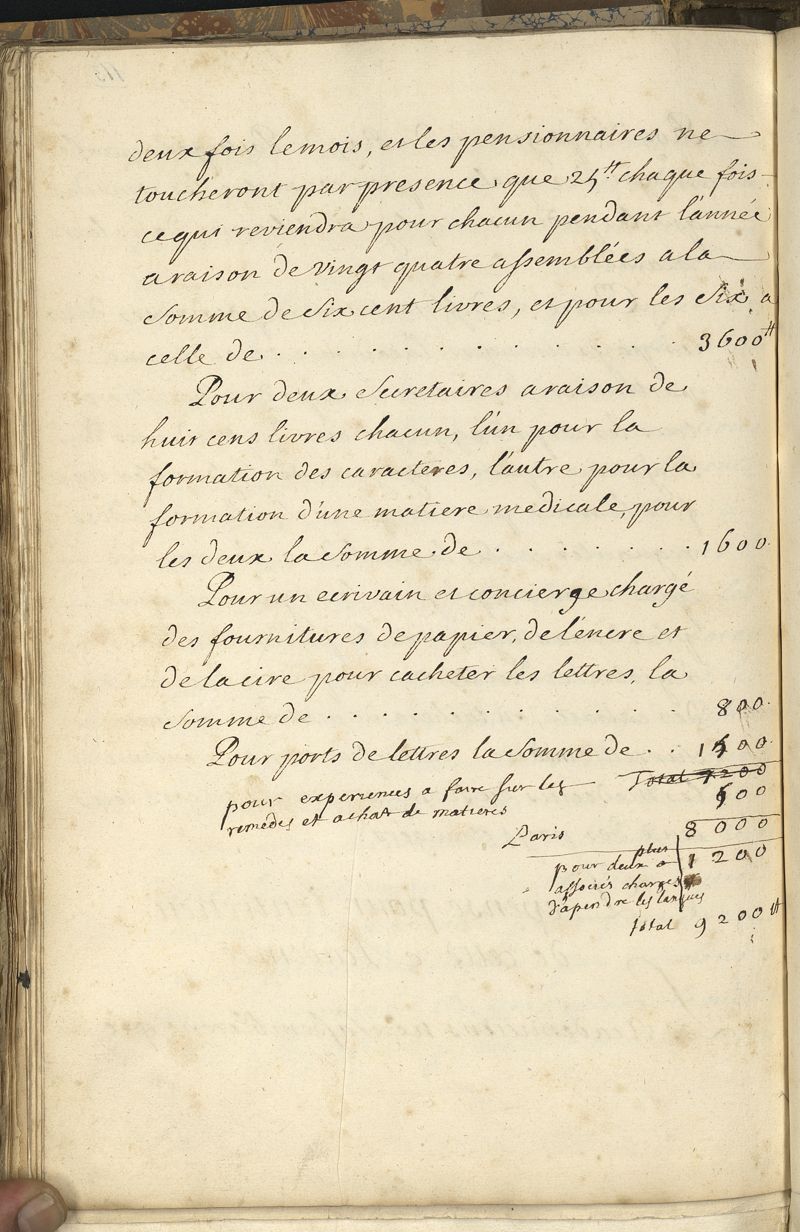 deux fois lemois, et les pensionnaires ne
toucheront par presence que 25.tt chaque fois
cequi reviendra pour chacun pendant l'année
araison de vingt quatre assemblées ala
somme de six cent livres, et pour les six a
celle de . . . . . . . . . . . 3600tt
Pour deux secretaires araison de
huit cens livres chacun, l'un pour la
formation des caracteres, l'autre pour la
formation d'une matiere medicale, pour
les deux la somme de . . . . . . . . 1600.
Pour un ecrivain et concierge chargé
des fournitures de papier, de l'encre et
de la cire pour cacheter les lettres, la
somme de . . . . . . . . . . . 800.
Pour ports de lettres la somme de . . 1500
Total 7200
pour experiences a faire sur les
remedes et achat de matieres 500
Paris 8000
plus
pour deux a 1200
associés chargés
d'apendre les langues
total 9200tt